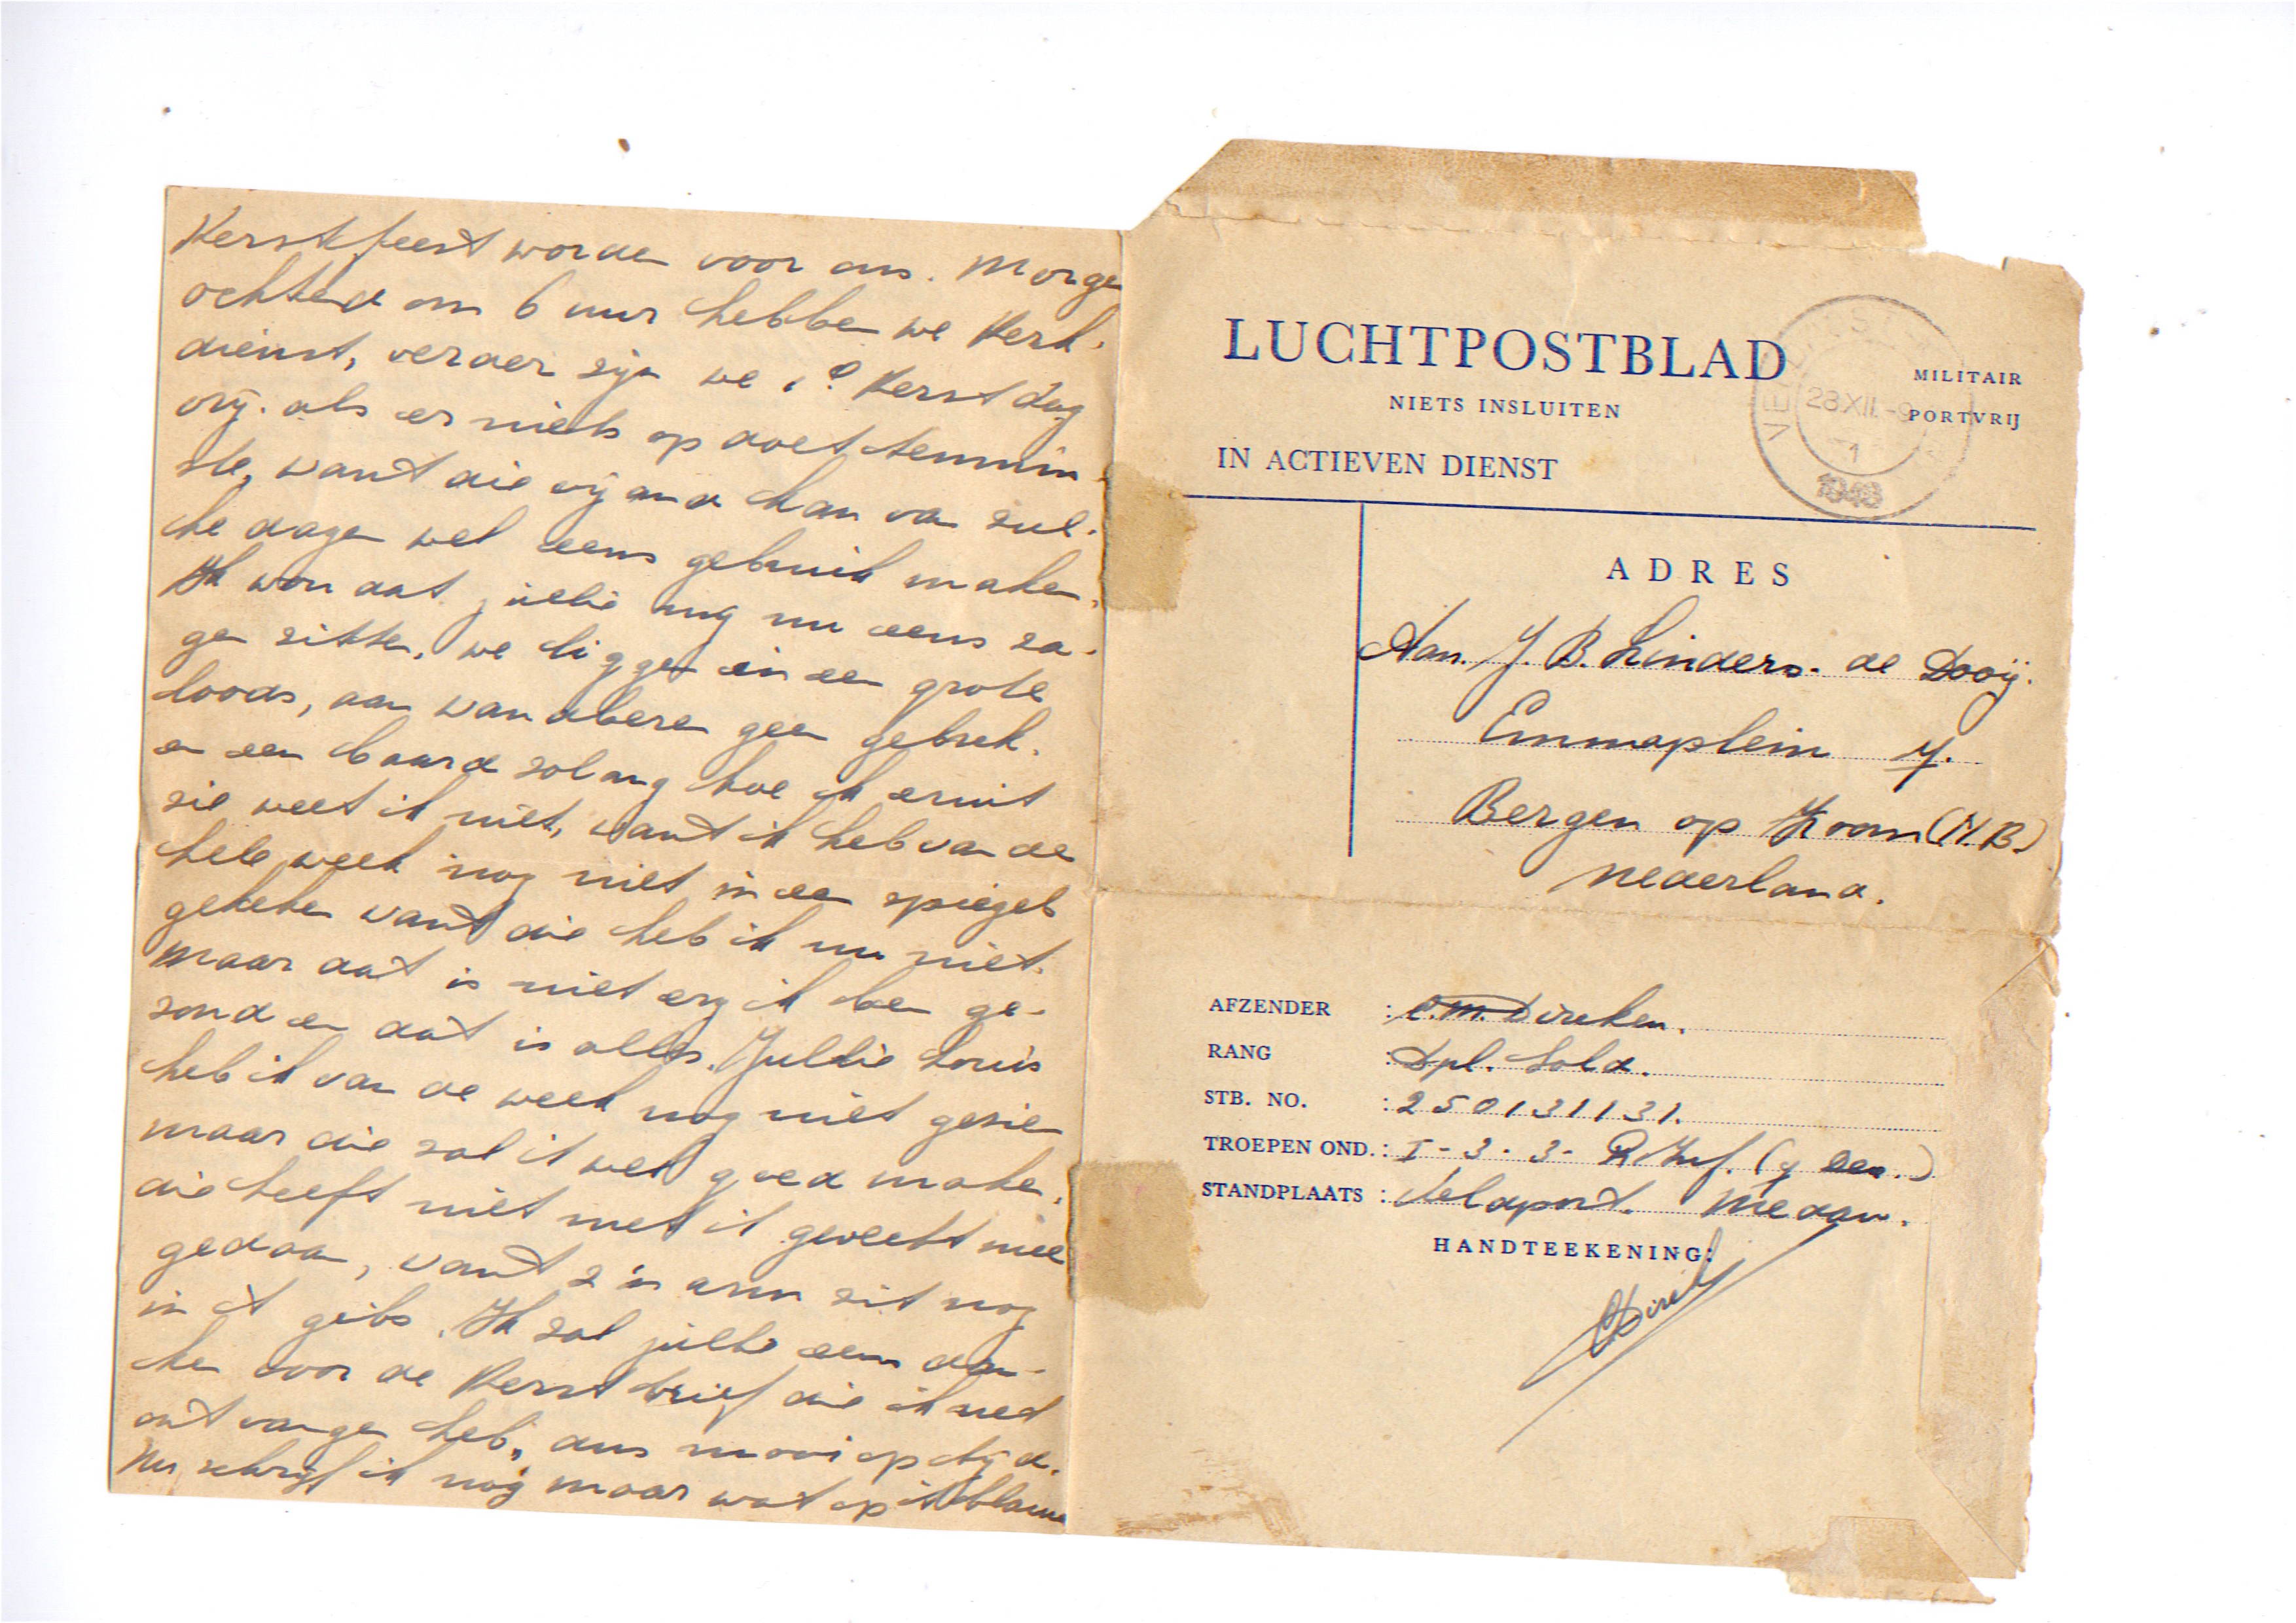 Kerstfeest worden voor ons. Morgen
ochtend om 6 uur hebben we Kerk-
dienst, verder zijn we 1e Kerstdag
vrij. als er niets op doet temmin-
ste, want die vijand kan van zul-
ke dagen wel eens gebruik maken.
Ik wou dat jullie mij nu eens za-
gen zitten, we liggen in een grote
loods, aan wandluizen geen gebrek.
en een baard zolang hoe ik eruit
zie weet ik niet, want ik heb van de
hele week nog niet in een spiegel
gekeken want die heb ik nu niet.
maar dat is niet erg ik ben ge-
zond en dat is alles. Jullie Louis
heb ik van de week nog niet gezien
maar die zal it wel goed maken,
die heeft niet met it gevecht mee
gedaan, want z'n arm zit nog
in 't gibs. Ik zal jullie eens dan-
ken voor de Kerstbrief die ik net
ontvangen heb, dus mooi op tijd.
Nu schrijf ik nog maar wat op it blauwe
LUCHTPOSTBLAD
NIETS INSLUITEN
MILITAIR
PORTVRIJ
IN ACTIEVEN DIENST
28.XII.-9
1
1948
ADRES
Aan. J. B. Linders. de Dooij.
Emmaplein 7.
Bergen op Zoom (N.B.)
Nederland.
AFZENDER : C.M. Dircken.
RANG : Dpl. Sold.
STB. NO. : 250131131.
TROEPEN OND. : I-3-3- R.Inf.
STANDPLAATS : Veldpost. Medan.
HANDTEEKENING: